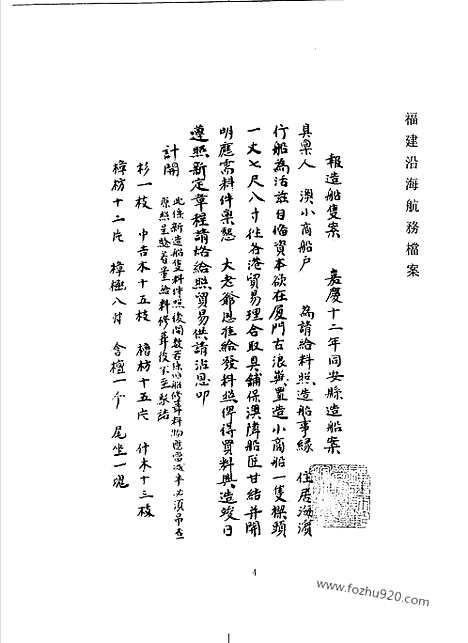 福建沿海航務檔案
報造船隻案　嘉慶十二年同安縣造船案
具稟人　澳小商船戶　為請給料照造船事緣　住居海濱
行船為活茲日備資本欲在厦門古浪嶼置造小商船一隻樑頭
一丈七尺八寸往各港貿易理合取具鋪保澳隣船匠甘結并開
明應需料件稟懇　大老爺恩准給發料照俾得買料興造竣日
遵照新定章程請烙給照貿易供請沾恩叩
計開
此係新造船隻料件照後開數若係小船修葺料物應當減半必須吊在
原照呈驗着量給料修葺後
杉一枝　中吉木十五枝　檜枋十五片　什木十三枝
樟枋十二片　樟極八片　含檀一个　尾坐一塊
4
www.fozhu920.com